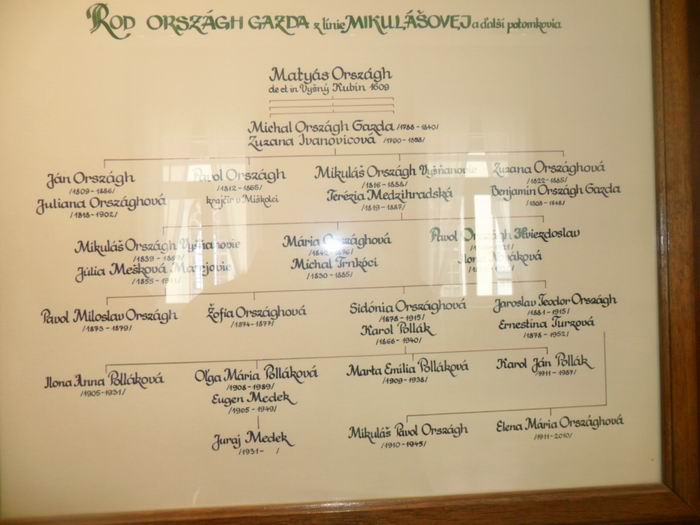 ROD ORSZÁGH GAZDA z línie MIKULÁŠOVEJ a ďalší potomkovia
Matyás Országh
de et in Vyšný Kubín 1609
Michal Országh Gazda /1788-1840/
Zuzana Ivanovicová /1790-1838/
Ján Országh
/1809-1886/
Juliana Országhová
/1818-1902/
Pavol Országh
/1812-1865/
krajčír v Miškolci
Mikuláš Országh Vyšňanovie
/1816-1888/
Terézia Medzihradská
/1819-1887/
Zuzana Országhová
/1822-1885/
Benjamin Országh Gazda
/1808-1848/
Mikuláš Országh Vyšňanovie
Júlia Mešková Matejovie
Mária Országhová
Michal Trnkóci
/1830-1885/
Pavol Országh Hviezdoslav
Ilona Nováková
Pavol Miloslav Országh
/1873-1879/
Žofia Országhová
/1874-1877/
Sidónia Országhová
/1878-1915/
Karol Pollák
/1866-1940/
Jaroslav Teodor Országh
/1881-1915/
Ernestina Turzová
/1878-1952/
Ilona Anna Polláková
/1905-1931/
Oľga Mária Polláková
/1908-1989/
Eugen Medek
/1905-1949/
Marta Emília Polláková
/1909-1938/
Karol Ján Pollák
/1911-1987/
Juraj Medek
/1931- /
Mikuláš Pavol Országh
/1910-1945/
Elena Mária Országhová
/1911-2010/